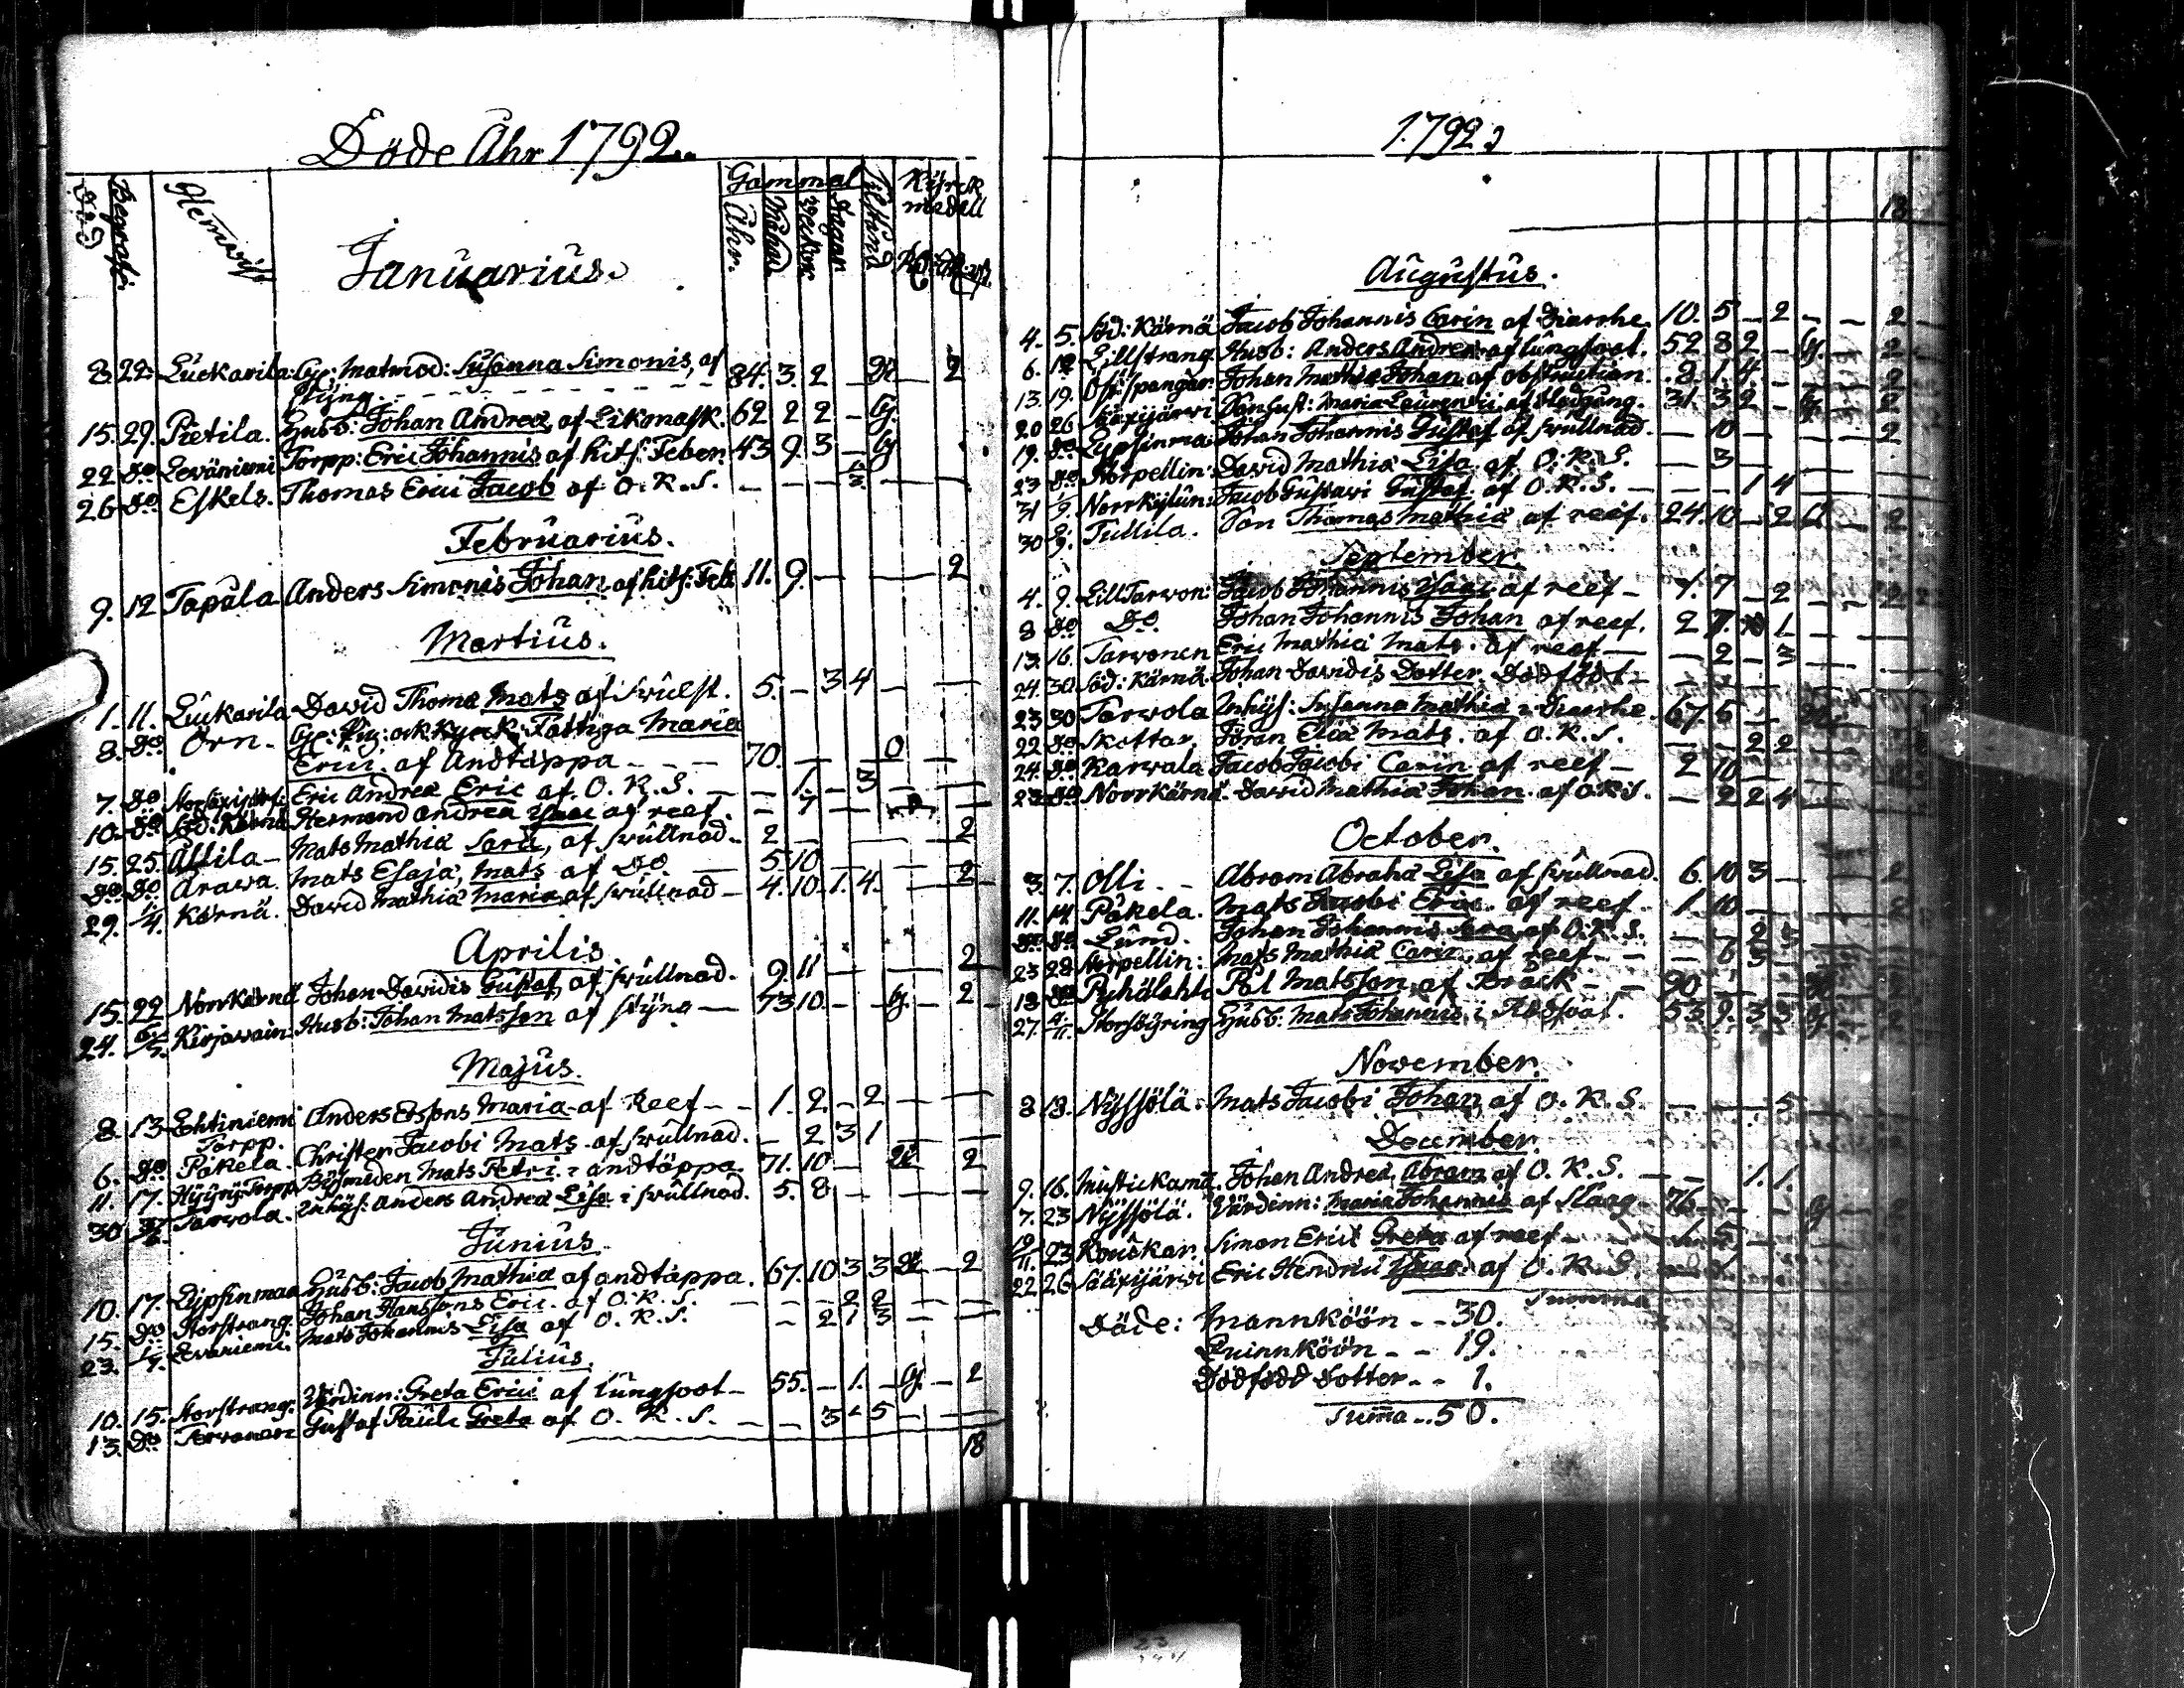 Döde Åhr 1792.
Död
Begrafn:
Hemvist
Gammal
Åhr.
Månad
Veckor
Dagar
Kyrck medell
Januarius.
8. 22. Luckarila: Matmod: Susanna Simonis, af
styng. 84. 3. 2 — 2
15. 29. Pietila. Husb: Johan Andreæ, af Likmask. 62 2 2 — G.
22 Do Leväniemi Torpp: Eric Johannis af hits: Feber. 43 9. 3 — G
26 Do Eskels. Thomas Erici Jacob af O. K. S. — — —
Februarius.
9. 12 Tapala Anders Simonis Johan af hits: Feb 11. 9. — — 2
Martius.
1. 11. Luckarila David Thomæ Mats af swulst. 5. — 3 4 — —
8. Do Örn. ock Kyrck: Fattiga Maria
Erici. af Andtäppa — — — 70. — — 0
7. Do Eric Andreæ Eric af O. K. S. — — 1. — 3
10. Do Söd: Kärnä Hermand Andreæ Isaac af reef. — 7 —
15. 25. Attila — Mats Mathiæ Sara, af swullnad. 2 — — — 2
Do Do Arawa. Mats Esajæ, Mats af Do. — 5 10
29. 1/4. Kärnä. David Mathiæ Maria af swullnad — 4. 10. 1. 4. — 2
Aprilis
15. 22 Norrkärnä Johan Davidis Gustaf, af swullnad. 9. 11 — — 2
24. 6/5. Kirjawain: Husb: Johan Matsson af styng — 73 10. — G. — 2
Majus.
8. 13 Ehtiniemi Anders Ersons Maria af Reef — — 1. 2. — 2 — —
Torpp.
6. Do Påkela. Christer Jacobi Mats. af swullnad. — 2 3 1
11. 17. Torpp. Mats Petri. i andtäppa. 71. 10 — 2
30 Tarvola. Inhys: Anders Andreæ Lisa i swullnad. 5. 8 — — — —
Junius
10. 17. Lypsinmaa Husb: Jacob Mathiæ af andtäppa. 67. 10 3 3 — 2
15. Do Storstrang. Johan Hanssons Eric. af O. K. S. — — — 2 2
23. 1/7. Evaniemi. Mats Johannis Lisa af O. K. S. — 2 1 3 — —
Julius.
10. 15. Storstrang. Värdinn: Greta Erici af lungsoot — 55. — 1. — G. — 2
13. Do Tarvonen Gustaf Pauli Greta af O. K. S. — — 3 — 5 — —
18
1792.
18
Augustus.
4. 5. Söd: Kärnä Jacob Johannis Carin af Diarrhe. 10. 5 — 2 — — 2
6. 12 Lillstrang. Husb: Anders Andreæ af lungsoot. 52 8 2 — G. 2
13. 19. Öfv: spangar. Johan Mathiæ Johan. af obstruction. 8. 1. 4. — — 2
20 26 Sääxjärvi Maria Laurentii, af 31. 3 2 — G. 2
19. Do Lypsinmaa Johan Johannis Gustaf af swullnad. — 10 — — — 2
23 Do Storpellin: David Mathiæ Lisa. af O. K. S. — 3 — —
31 Norrkylun: Jacob Gustavi Gustaf. af O. K. S. — — — 1 4
30 Tullila. Son Thomas Mathiæ af reef. 24. 10 — 2 G — 2
September.
4. 9. Lill Tarvon: Jacob Johannis Isaac af reef — 1. 7 — 2 — — 2
8 Do Do. Johan Johannis Johan af reef. 2 7. 1 —
13. 16. Tarvonen Eric Mathiæ Mats. af reef — — 2 — 3 — —
24. 30 Söd: Kärnä Johan Davidis Dotter Dödfödt —
23 30 Tarvola Inhys: Susanna Mathiæ i Diarrhe. 67. 5 —
22 Do Skottar Jöran Eliæ Mats. af O. K. S. — — 2 2
24. Do Karvala Jacob Jacobi Carin af reef — 2 10 —
23 Do Norrkärnä. David Mathiæ Johan. af O. K. S. — 2 2 4
October.
3. 7. Olli. — Abram Abrahæ Lisa af swullnad. 6. 10 3 — 2
11. 14. Påkela. Mats Jacobi Eric. af reef. 1. 10 — 2
Do Do Lund. Johan Johannis af O. K. S. — — 2 5
23 28 Storpellin: Mats Mathiæ Carin, af reef — — 6 3 —
18 Do Pyhälahti Pål Matsson af Bråck — — 90 —
27. 4/11. Storsöyring Husb: Mats Johannis i Rödsoot. 53. 9. 3 3 G. 2
November.
8 18. Nyssölä. Mats Jacobi Johan af O. K. S. — — 5
December.
9. 16. Mustickamä. Johan Andreæ Abram af O. K. S. — — 1. 1.
7. 23 Nyssölä. Värdinn: Maria Johannis af Slaag 76 — — G
19/11. 23 Kouckar. Simon Erici Greta af reef — 1. 5 —
22 26 Sääxjärvi Eric Hendrici Isaac af O. K. S.
Summa
Döde: Mannköön — — 30.
Quinnköön — — 19.
Dödfödd Dotter — — 1.
Summa — 50.